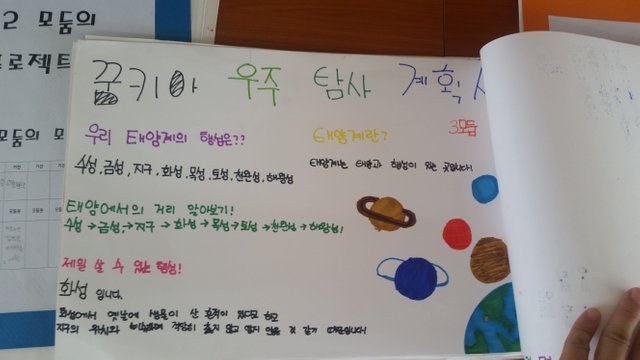 2 모둠의
로젝트
모둠의 모
꿈키아 우주 탐사 계획
3모둠
우리 태양계의 행성은??
수성, 금성, 지구, 화성, 목성, 토성, 천왕성, 해왕성
태양계란?
태양계는 태양과 행성이 있는 곳입니다
태양에서의 거리 알아보기!
수성 → 금성 → 지구 → 화성 → 목성 → 토성 → 천왕성 → 해왕성!
제일 살 수 있는 행성!
화성 입니다.
화성에서 옛날에 생물이 산 흔적이 있다고 하고
지구의 위치와 비슷하여 적당히 춥지 않고 덥지 않을 것 같기 때문입니다!